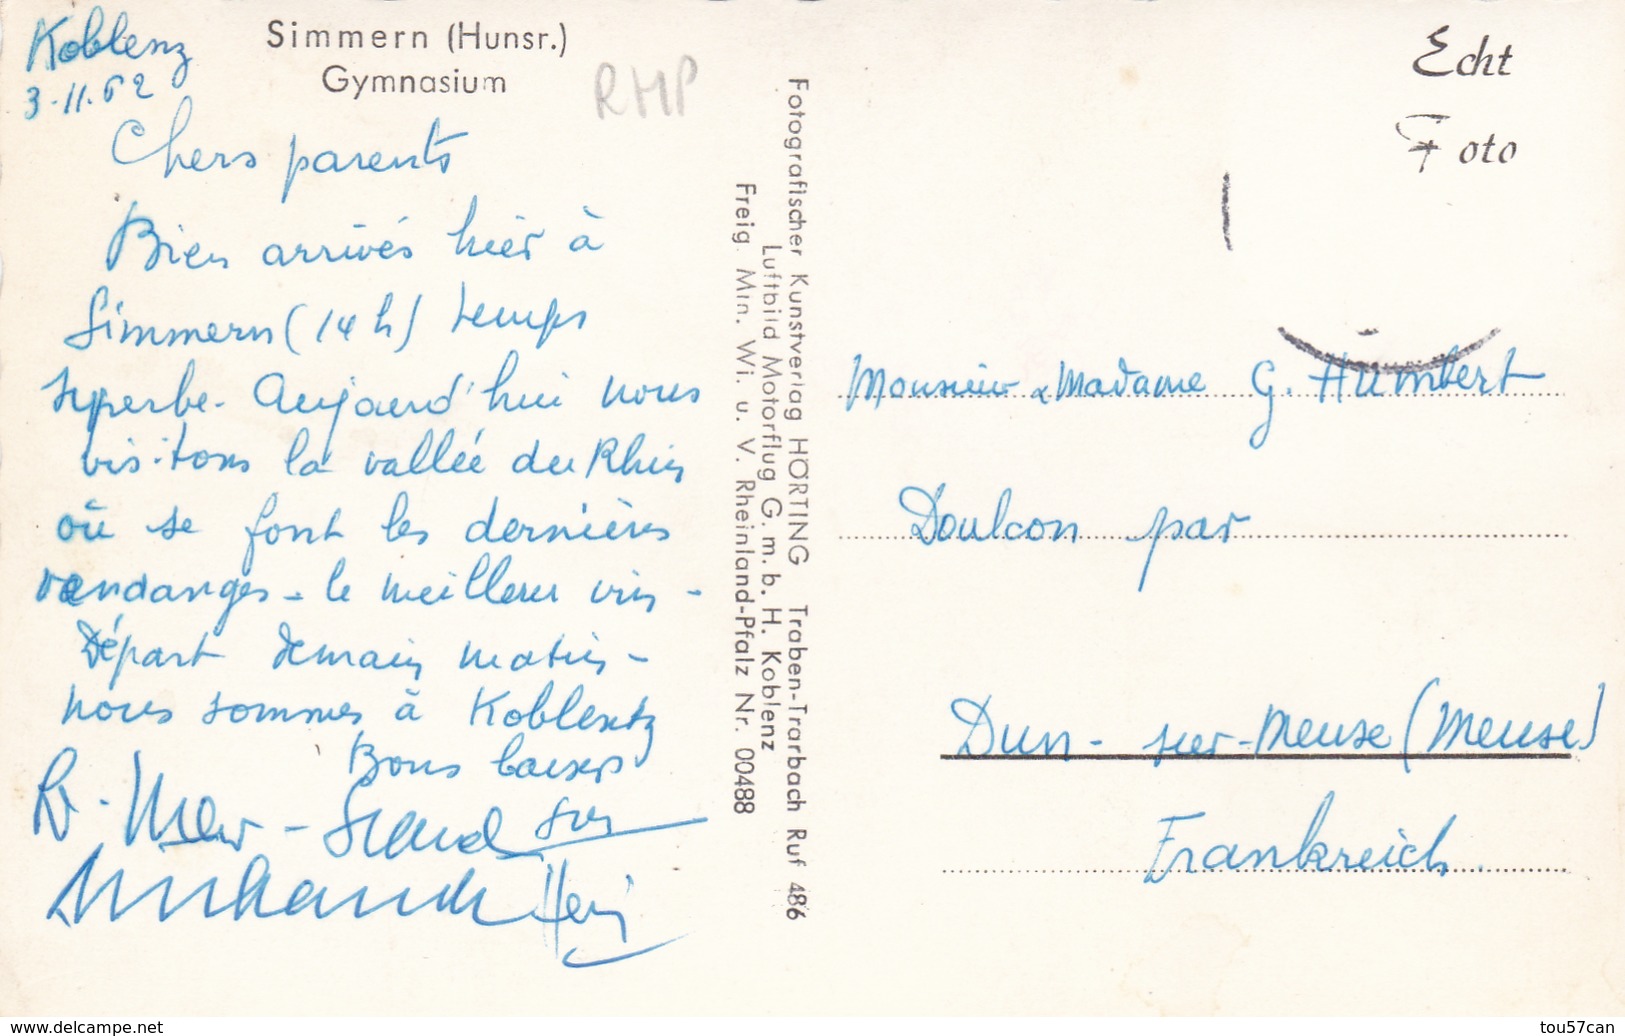 Koblenz
3-11.62
Simmern (Hunsr.)
Gymnasium
RHP
Chers parents
Bien arrivés hier à
Simmern (14 h) temps
superbe. Aujourd'hui nous
visitons la vallée du Rhin
où se font les dernières
vendanges - le meilleur vin -
Départ demain matin -
nous sommes à Koblentz
Bons baisers
Fotografischer Kunstverlag HÖRTING Traben-Trarbach Ruf 486
Luftbild Motorflug G.m.b.H. Koblenz
Freig. Min. Wi. u. V. Rheinland-Pfalz Nr. 00488
Echt
Foto
Monsieur & Madame G. Humbert
Doulcon par
Dun-sur-Meuse (Meuse)
Frankreich.
www.delcampe.net
tou57can